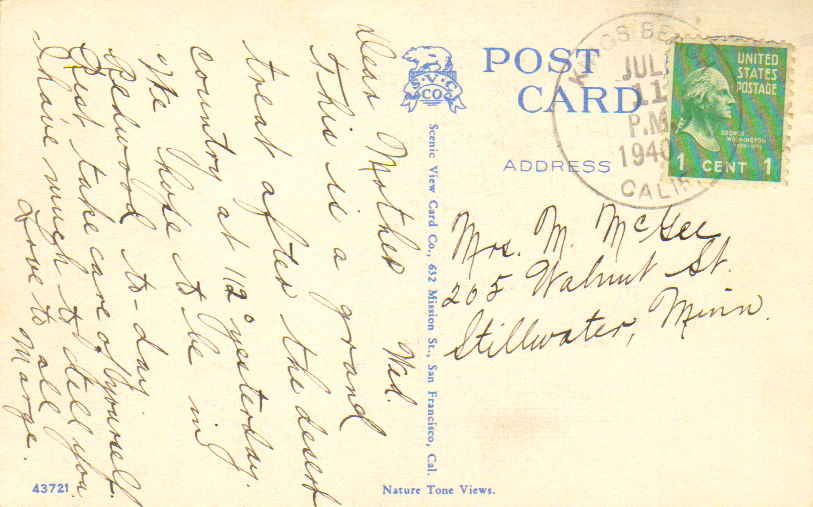 POST
CARD
ADDRESS
KINGS BEACH
JUL
11
P.M.
1940
CALIF.
UNITED
STATES
POSTAGE
GEORGE
WASHINGTON
1 CENT 1
V
CO
Scenic View Card Co., 632 Mission St., San Francisco, Cal.
Dear Mother Wed.
This is a grand
treat after the desert
country at 112° yesterday.
We hope to be in
Redwood to-day
Rest take care of yourself.
I have much to tell you
Love to all
Marge.
Mrs. M. McGee
205 Walnut St.
Stillwater, Minn.
43721
Nature Tone Views.